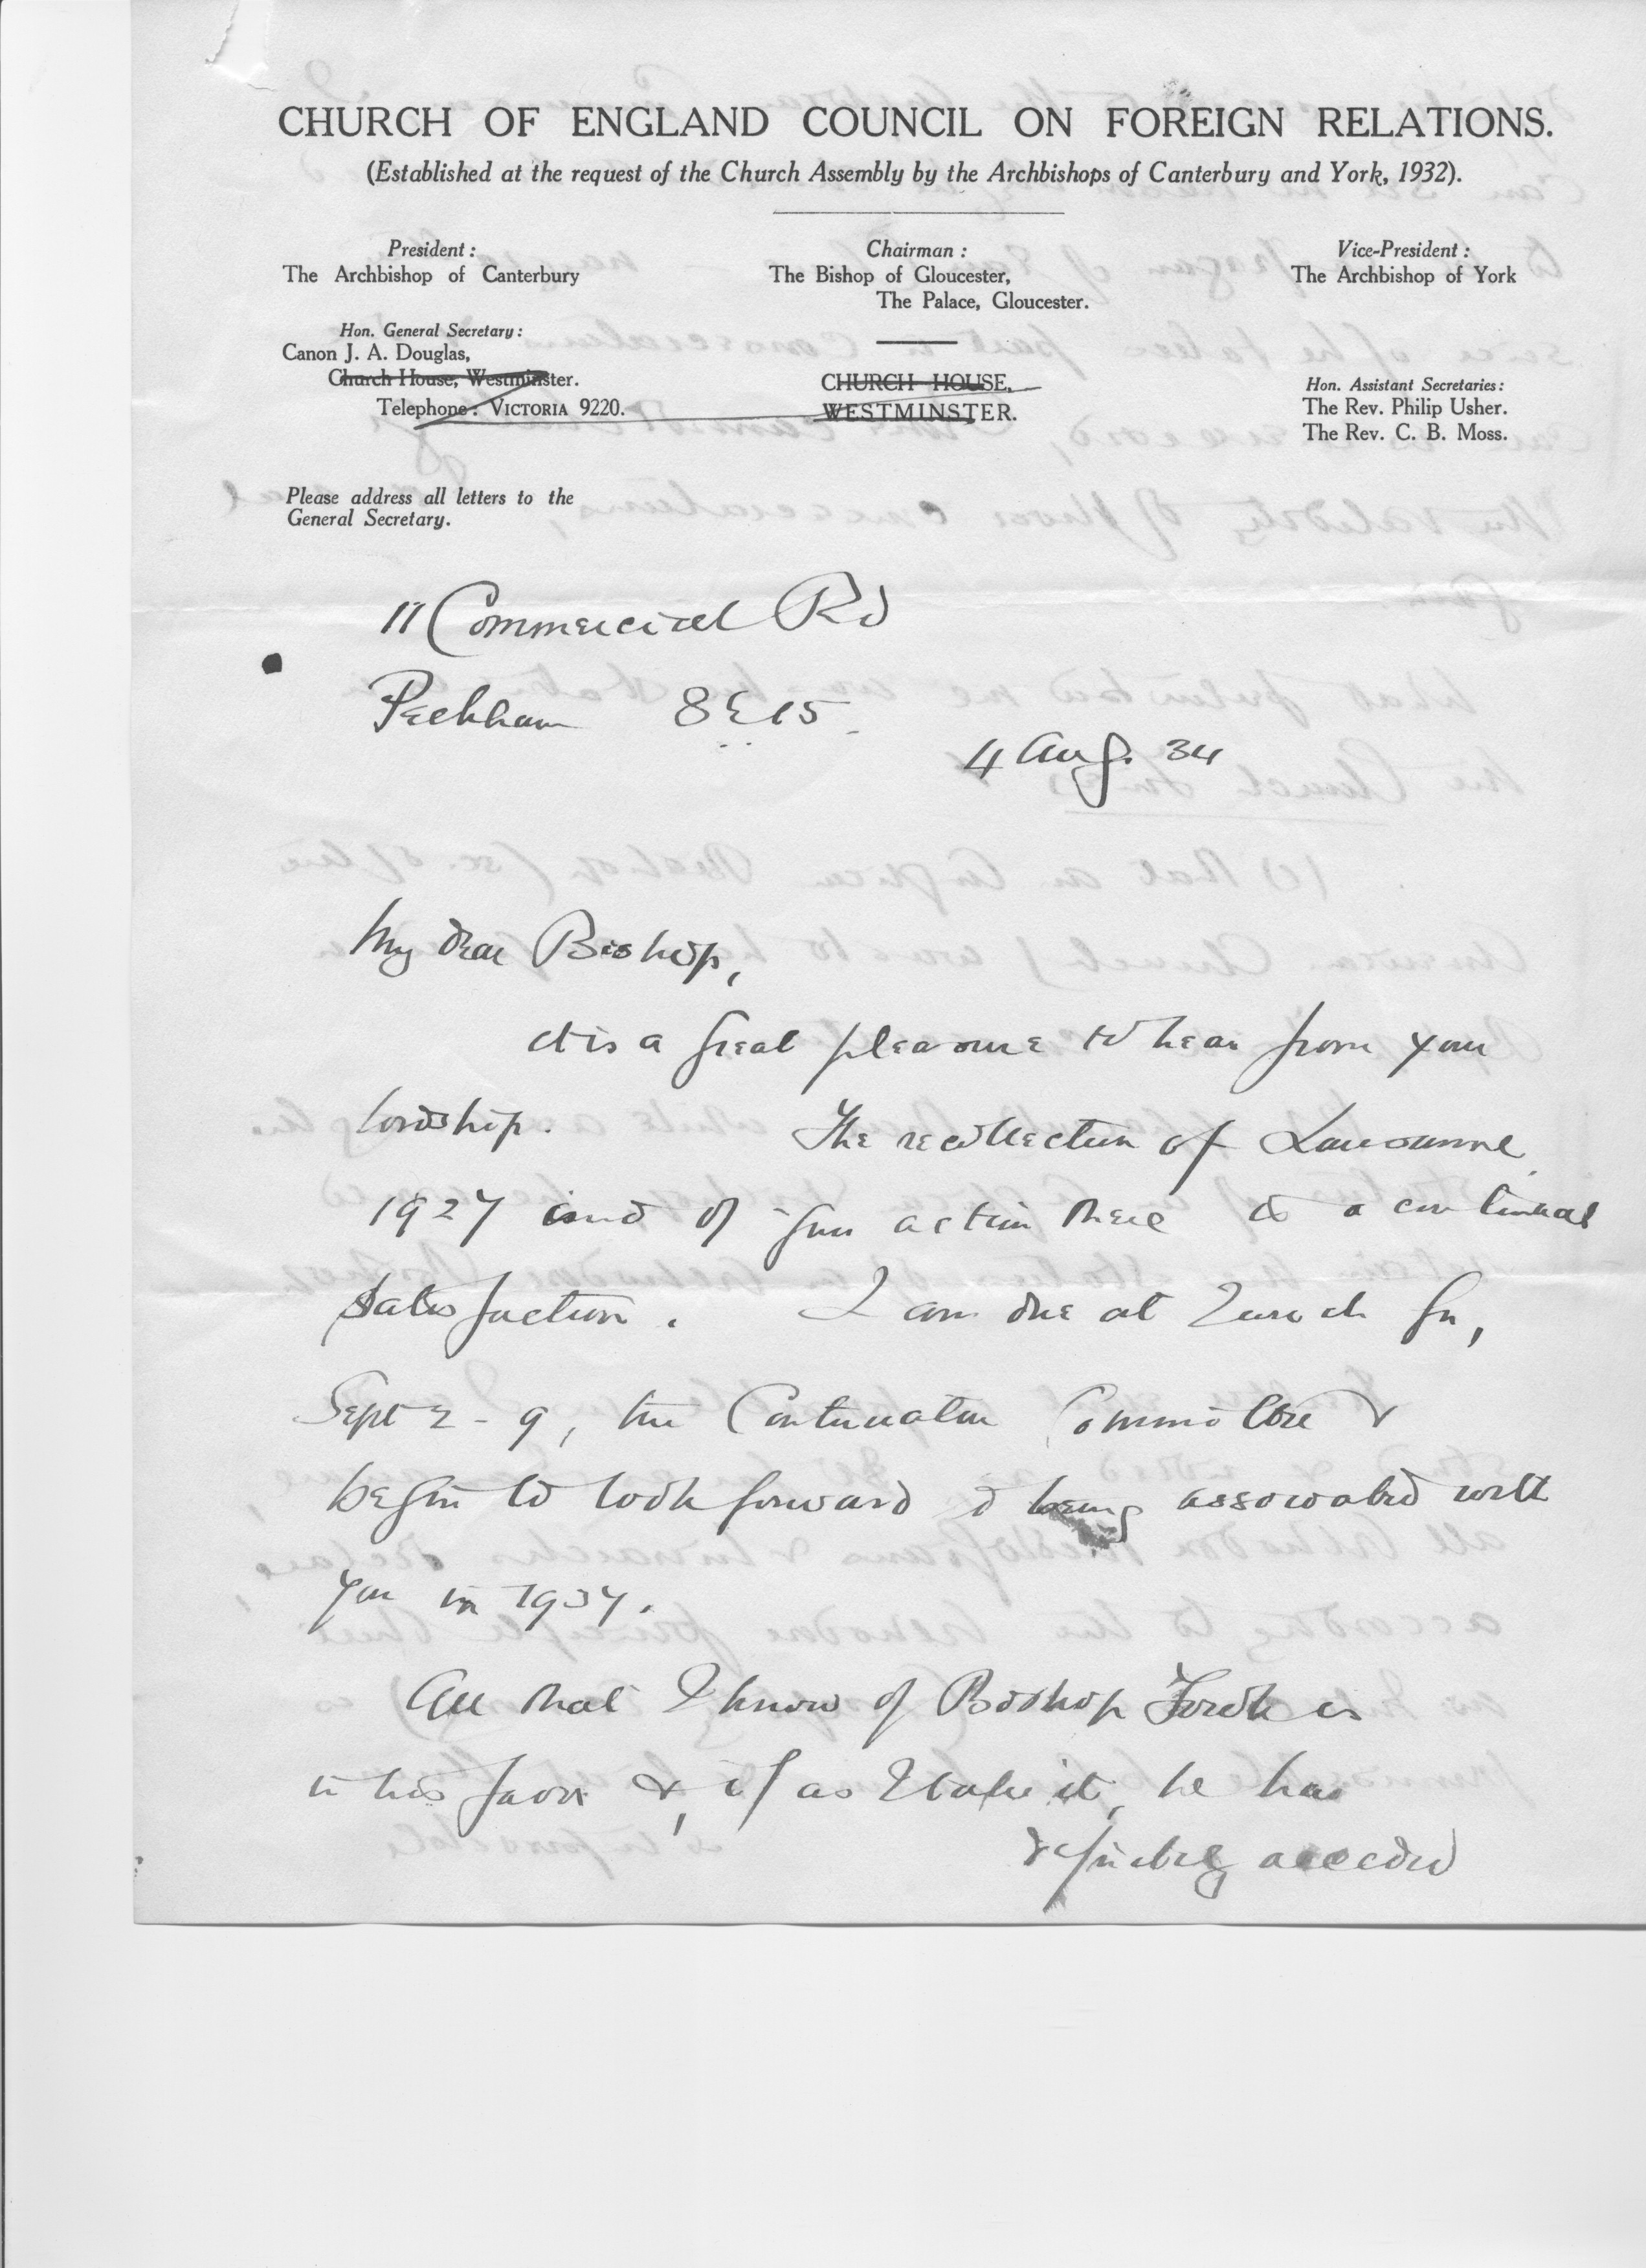 CHURCH OF ENGLAND COUNCIL ON FOREIGN RELATIONS.
(Established at the request of the Church Assembly by the Archbishops of Canterbury and York, 1932).
President :
The Archbishop of Canterbury
Hon. General Secretary :
Canon J. A. Douglas,
Church House, Westminster.
Telephone : VICTORIA 9220.
Chairman :
The Bishop of Gloucester,
The Palace, Gloucester.
CHURCH HOUSE,
WESTMINSTER.
Vice-President :
The Archbishop of York
Hon. Assistant Secretaries :
The Rev. Philip Usher.
The Rev. C. B. Moss.
Please address all letters to the
General Secretary.
11 Commercial Rd
Peckham SE15
4 Aug. 34
My dear Bishop,
It is a great pleasure to hear from your
lordship. The recollection of Lausanne
1927 and of your action there is a continual
satisfaction. I am due at Zurich for,
Sept 2 - 9, the Continuation Committee &
begin to look forward to being associated with
you in 1937.
All that I know of Bishop is
in his favor &, if as I take it, he has
definitely acceded